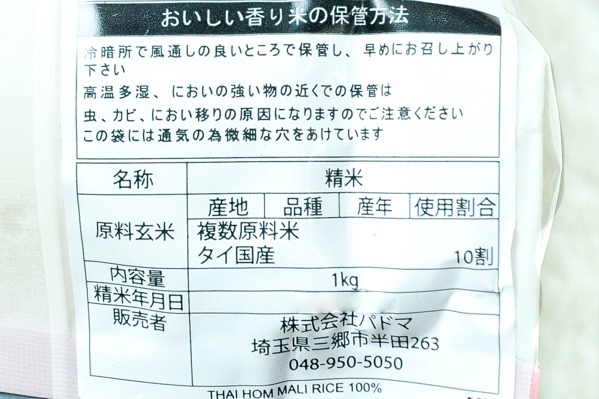 おいしい香り米の保管方法
冷暗所で風通しの良いところで保管し、早めにお召し上がり
下さい
高温多湿、においの強い物の近くでの保管は
虫、カビ、におい移りの原因になりますのでご注意ください
この袋には通気の為微細な穴をあけています
名称 精米
原料玄米 産地 品種 産年 使用割合
複数原料米
タイ国産 10割
内容量 1kg
精米年月日
販売者 株式会社パドマ
埼玉県三郷市半田263
048-950-5050
THAI HOM MALI RICE 100%